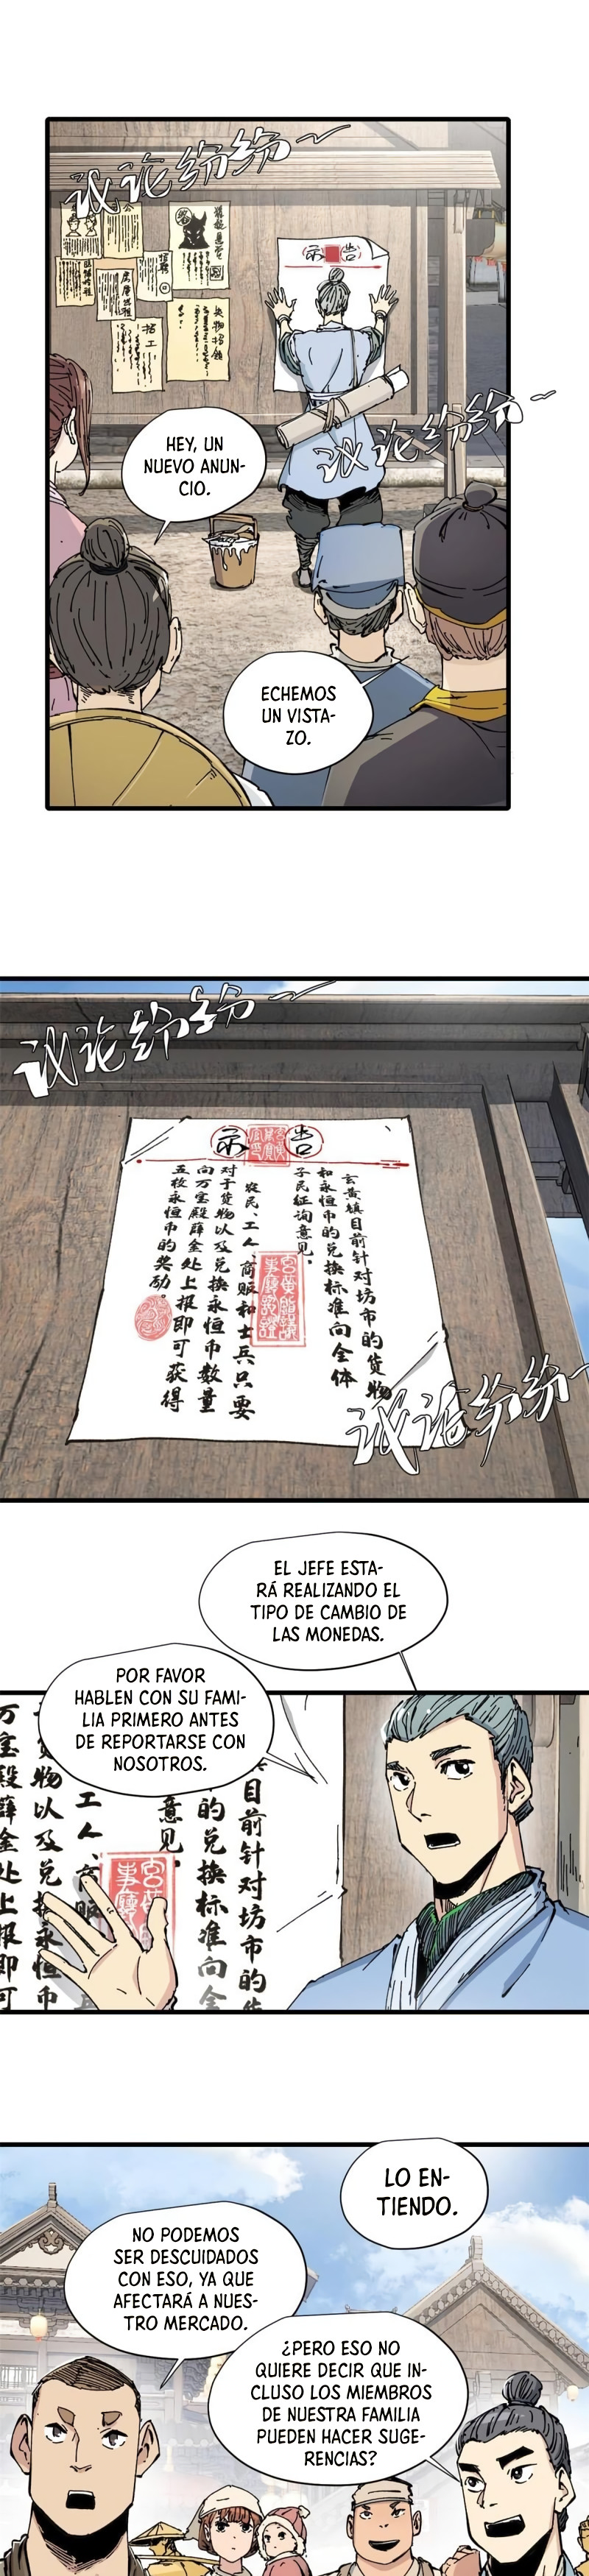 议论纷纷~
告 示
招工
议论纷纷~
HEY, UN
NUEVO ANUN-
CIO.
ECHEMOS
UN VISTA-
ZO.
议论纷纷~
示 告
玄黄镇目前针对坊市的货物
和永恒币的兑换标准向全体
子民征询意见,
农民、工人、商贩和士兵只要
对于货物以及兑换永恒币数量
向万宝殿薛金处上报即可获得
五枚永恒币的奖励。
议论纷纷~
EL JEFE ESTA-
RÁ REALIZANDO EL
TIPO DE CAMBIO DE
LAS MONEDAS.
POR FAVOR
HABLEN CON SU FAMI-
LIA PRIMERO ANTES
DE REPORTARSE CON
NOSOTROS.
目前针对坊市的货
的兑换标准向全
意见,
工人、商贩
货物以及兑 永恒币
万宝殿薛金处上报即可
LO EN-
TIENDO.
NO PODEMOS
SER DESCUIDADOS
CON ESO, YA QUE
AFECTARÁ A NUES-
TRO MERCADO.
¿PERO ESO NO
QUIERE DECIR QUE IN-
CLUSO LOS MIEMBROS
DE NUESTRA FAMILIA
PUEDEN HACER SUGE-
RENCIAS?